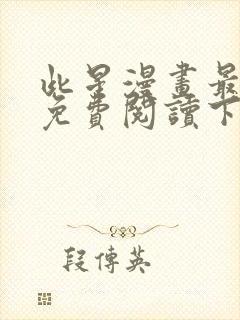 此星漫畫最
免費閱讀下
段傳英